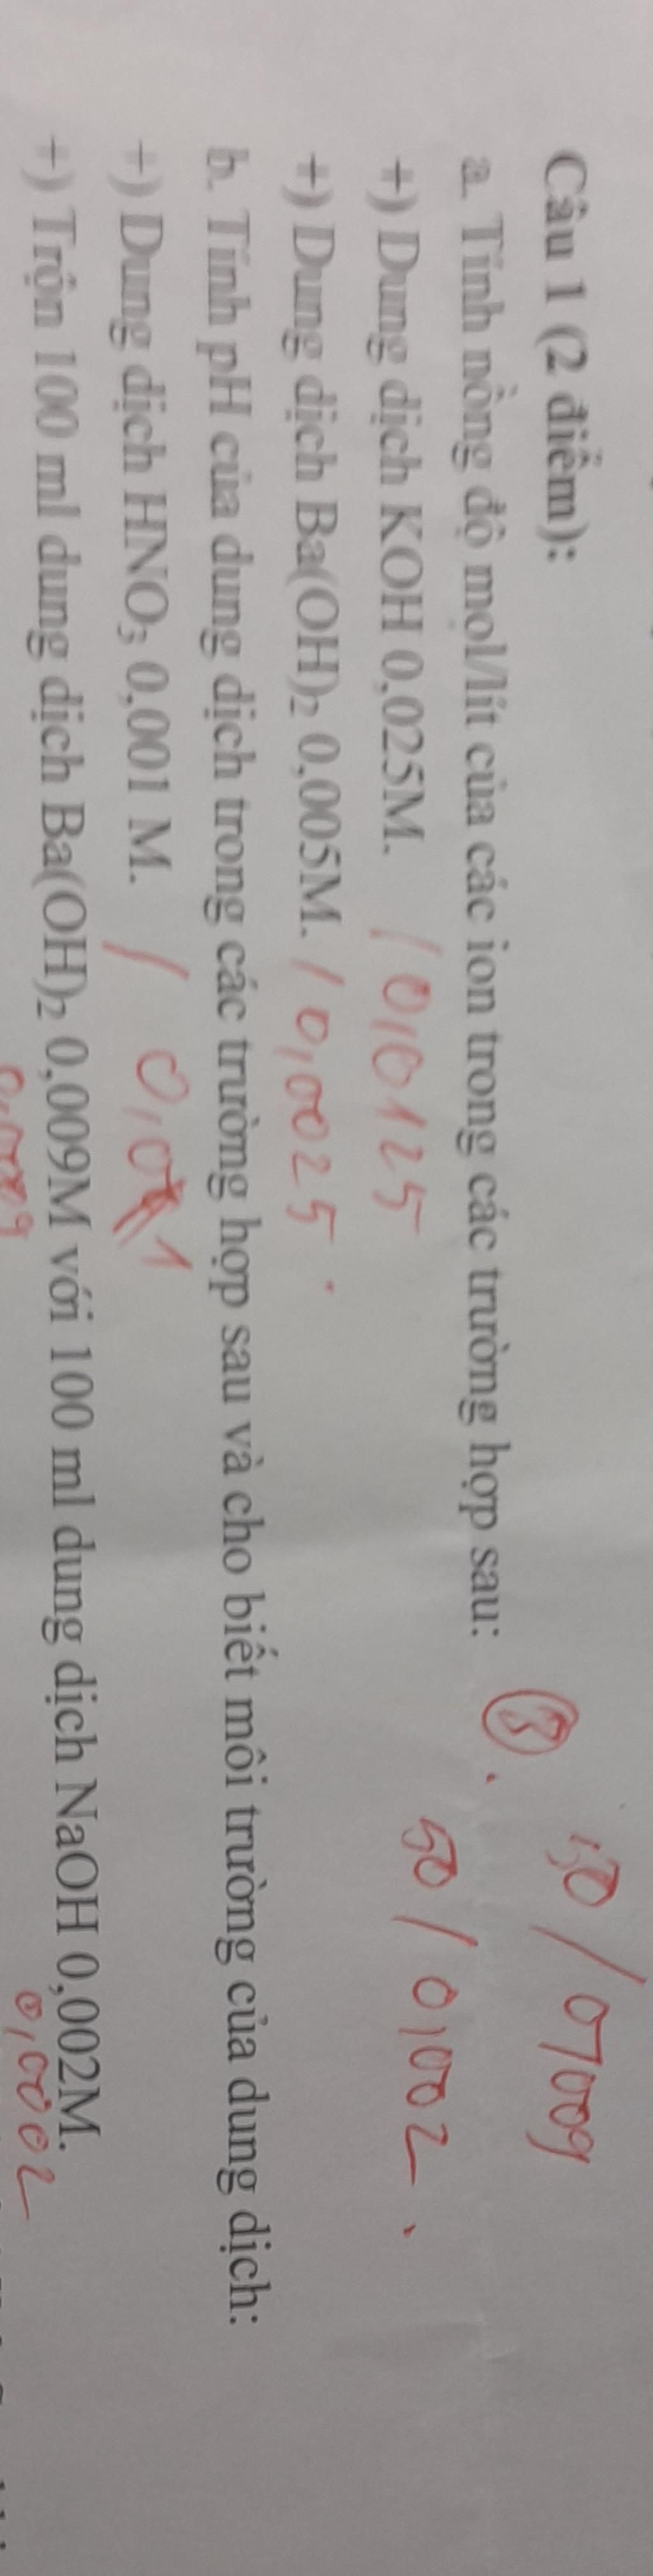 Câu 1 (2 điểm):
50 / 0,009
a. Tính nồng độ mol/lít của các ion trong các trường hợp sau:
50 / 0,002
+) Dung dịch KOH 0,025M. / 0,0125
+) Dung dịch Ba(OH)₂ 0,005M. / 0,0025
b. Tính pH của dung dịch trong các trường hợp sau và cho biết môi trường của dung dịch:
+) Dung dịch HNO₃ 0,001 M. /
+) Trộn 100 ml dung dịch Ba(OH)₂ 0,009M với 100 ml dung dịch NaOH 0,002M.
0,0009 0,0002